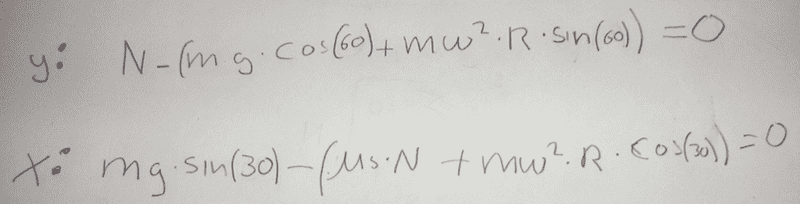 y: N-(mg·cos(60)+mw²·R·sin(60))=0
x: mg·sin(30)-(μs·N+mw²·R·cos(30))=0